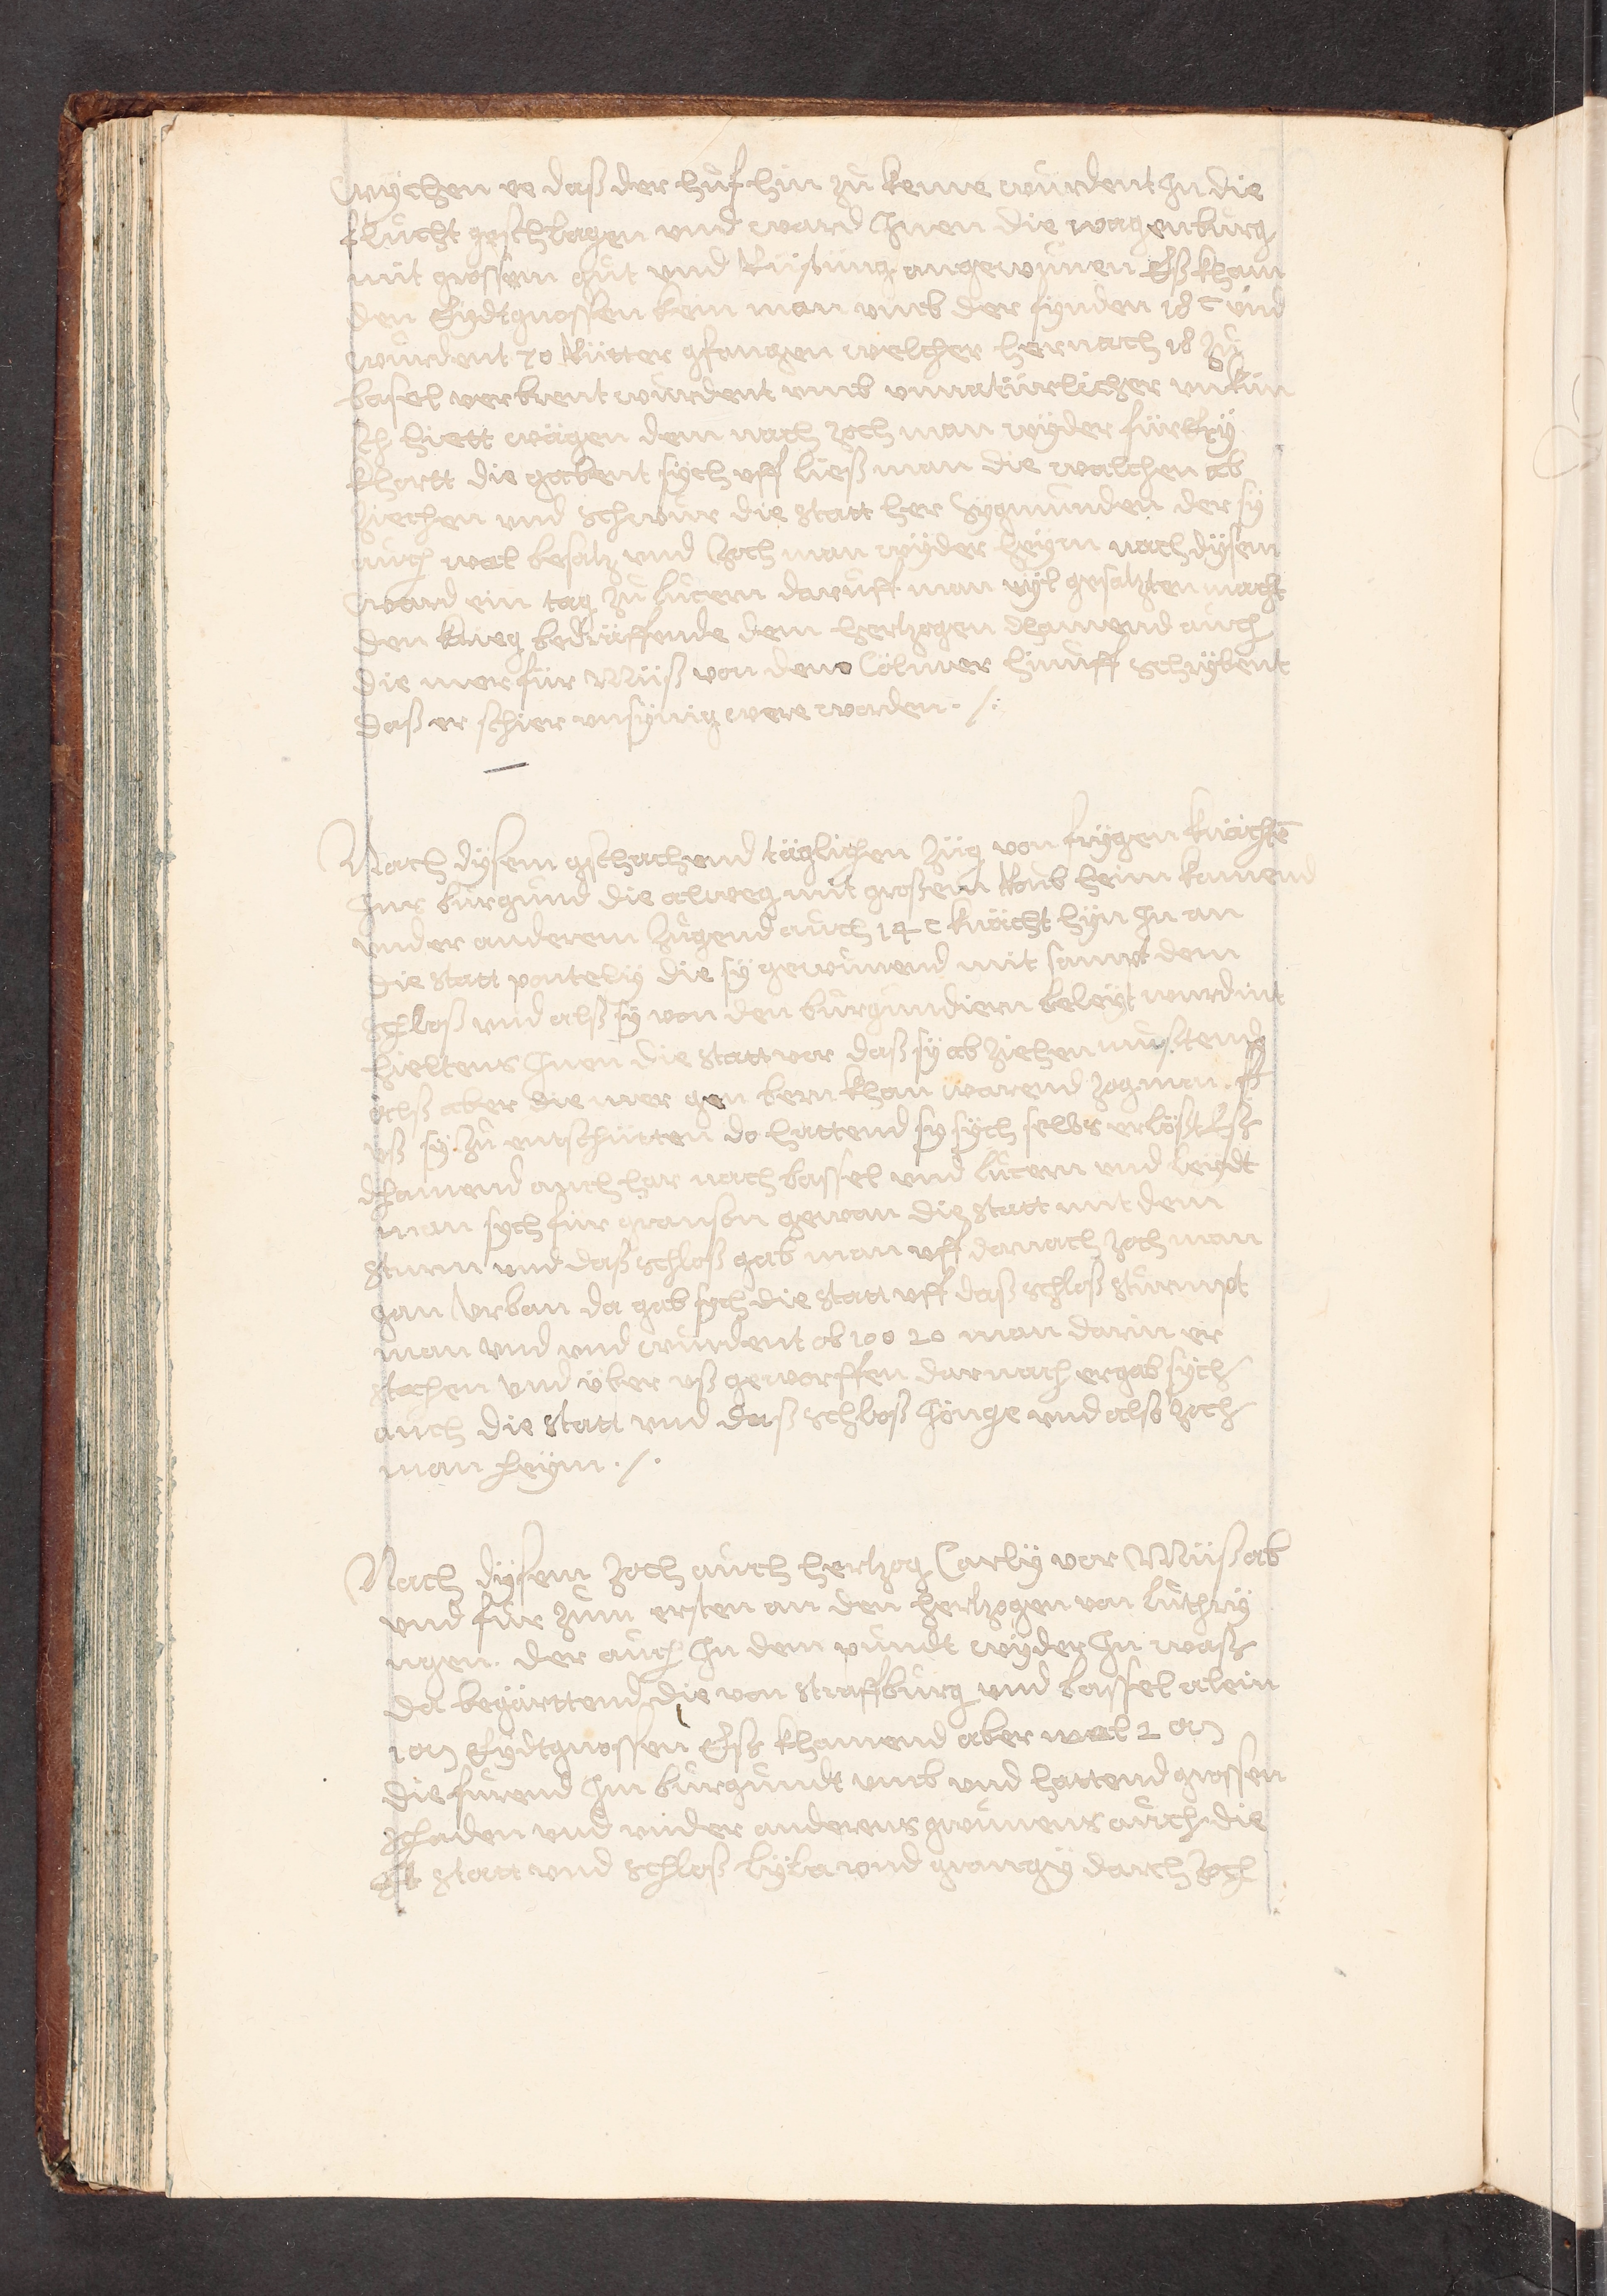 wychen ee daß der huͦf hin zuͦ keme wurdent In die
flucht geschlagen vnd ward Inen die wagenburg
mit grossem guͦt vnd Rüstung angewunen Eß kham
den Eydtgnossen kein man vmb der fynden 18 c vnd
wurdent 70 Rütter gfangen welcher hernach 18 zuͦ
basel verbrent wurdent vmb vnnatürlicher vnkün
sch hiett wägen dem nach zoch man wyder für
khartt die gabent sych vff ließ man die walchen ab
ziechen vnd schwuͦr die statt her Sygmunden der sy
auch wol besatz vnd zoch man wyder heym nach dysem
ward ein tag zuͦ lucern daruff man vyl gesatzten macht
den krieg bedräffende dem hertzogen khamend auch
die mer für Nüß von dem Cölmer hinuff schrybent
daß er schier vnsynig were worden ./.
Nach dysem gschachend täglichen züg von frygen knächte
Inr burgund die alweg mit großem Roub heim kamend
vnder anderem zugend auch 14 c knächt hyn In an
die statt ponteliy die sy gewunend mit sampt dem
schloß vnd alß sy von den burgundiern beleyt wurdint
hieltens Inen die statt vor daß sy ab ziehen muͦstend
alß aber die mer gen bern khan warend zog man
vß sy zuͦ entschütten do hattend sy sych selbs erlößt Eß
khamend auch har nach bassel vnd lucern vnd leydt
man sych für granson gewan die statt mit dem
sturm vnd daß schloß gab man vff danach zoch man
gan Vrban da gab sych die statt vff daß schloß sturmpt
man vnd vnd wurdent ob 100 20 man darin er
stochen vnd über vß geworffen darnach ergab sych
auch die statt vnd daß schloß Jönge vnd also zoch
man heym ./.
Nach dysem zoch auch hertzog Carly vor Nüß ab
vnd fuͦr zum ersten an den hertzogen von luthry
ngen. der auch In dem pundt wyder In waß
da begärttend die von straßburg vnd bassel alein
1 m Eydtgnossen Eß khamend aber wol 2 m
die furend Im burgundt vmb vnd hattend grossen
schaden vnd vnder anderens gwunens auch die
statt vnd schloß lyla vnd grangy darch zoch